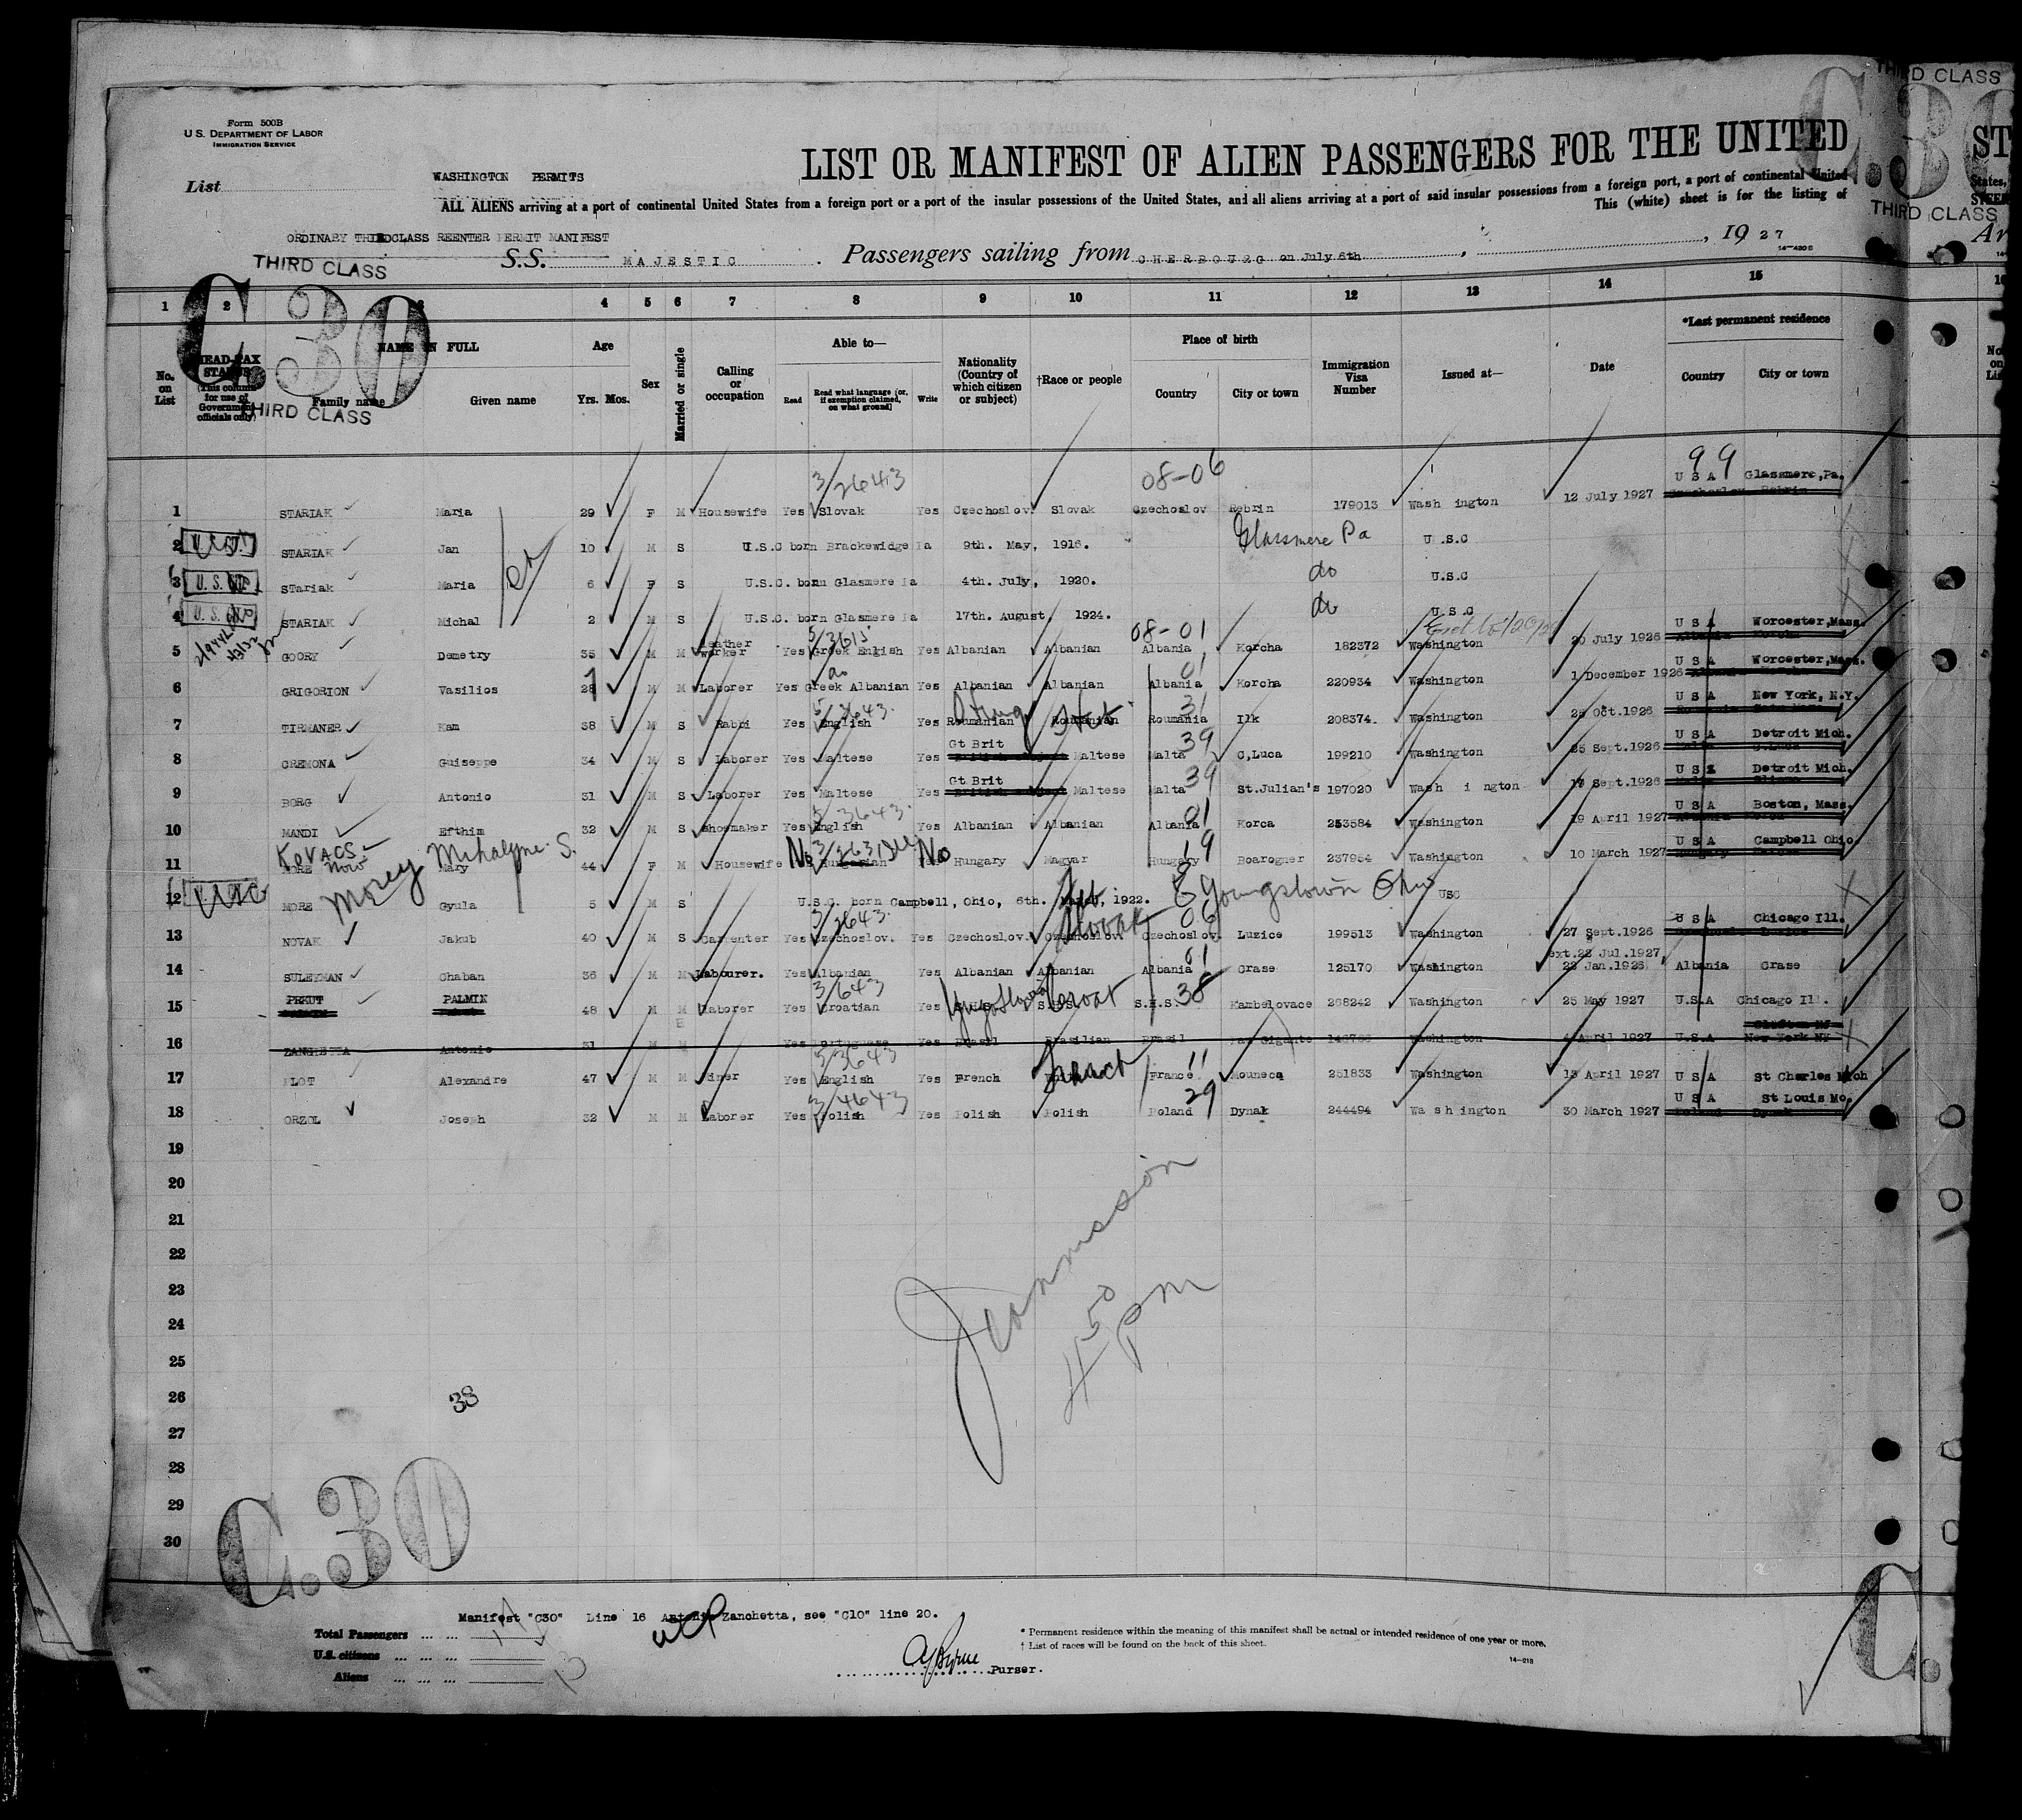 THIRD CLASS
Form 500B
U.S. DEPARTMENT OF LABOR
IMMIGRATION SERVICE
LIST OR MANIFEST OF ALIEN PASSENGERS FOR THE UNITED
ST
List
WASHINGTON PERMITS
ALL ALIENS arriving at a port of continental United States from a foreign port or a port of the insular possessions of the United States, and all aliens arriving at a port of said insular possessions from a foreign port, a port of continental United
States,
This (white) sheet is for the listing of
THIRD CLASS
ORDINARY THIRDCLASS REENTER PERMIT MANIFEST
THIRD CLASS
S.S. MAJESTIC . Passengers sailing from CHERBOURG on July 6th , , 19 27
Ar
14-430 B
C.30
1 2 3 4 5 6 7 8 9 10 11 12 13 14 15
No. on List
HEAD-TAX STATUS (This column for use of Government officials only)
NAME IN FULL
Family name Given name
Age
Yrs. Mos.
Sex
Married or single
Calling or occupation
Able to—
Read Read what language [or, if exemption claimed, on what ground] Write
Nationality (Country of which citizen or subject)
†Race or people
Place of birth
Country City or town
Immigration Visa Number
Issued at—
Date
*Last permanent residence
Country City or town
No. on Lis
THIRD CLASS
3/2643 08-06 99
1 STARIAK Maria 29 F M Housewife Yes Slovak Yes Czechoslov. Slovak Czechoslov Rebrin 179013 Wash ington 12 July 1927 U S A Glassmere,Pa.
2 STARIAK Jan 10 M S U.S.C born Brackewidge Pa 9th. May, 1916. Glassmere Pa U.S.C
3 U.S. STariak Maria 6 F S U.S.C. born Glasmere Pa 4th. July, 1920. do U.S.C
4 U.S. STARIAK Michal 2 M S U.S.C. born Glasmere Pa 17th. August, 1924. do U.S.C
5/3615 08-01
5 GOORY Demetry 35 M M Leather worker Yes Greek English Yes Albanian Albanian Albania Korcha 182372 Washington 20 July 1926 U S A Worcester,Mass.
do 01
6 GRIGORION Vasilios 28 M M Laborer Yes Greek Albanian Yes Albanian Albanian Albania Korcha 220934 Washington 1 December 1926 U S A Worcester,Mass.
5/3643 31
7 TIRMANER Kam 38 M S Rabbi Yes English Yes Roumanian Roumanian Stet Roumania Ilk 208374. Washington 25 Oct.1926 U S A New York, N.Y.
39
8 CREMONA Guiseppe 34 M S Laborer Yes Maltese Yes Gt Brit Maltese Malta C,Luca 199210 Washington 25 Sept.1926 U S A Detroit Mich.
39
9 BORG Antonio 31 M S Laborer Yes Maltese Yes Gt Brit Maltese Malta St.Julian's 197020 Wash i ngton 17 Sept.1926 U S A Detroit Mich.
5/3643 01
10 MANDI Efthim 32 M S Shoemaker Yes English Yes Albanian Albanian Albania Korca 253584 Washington 19 April 1927 U S A Boston, Mass.
KOVACS now Mihalyne S. No No 19
11 MORE Mary 44 F M Housewife Hungarian Yes Hungary Magyar Hungary Boarogner 237954 Washington 10 March 1927 U S A Campbell Ohio
12 USC MORE Morey Gyula 5 M S U.S.C. born Campbell, Ohio, 6th. March, 1922. Youngstown Ohio USC
3/2643 Slovak 06
13 NOVAK Jakub 40 M S Carpenter Yes Czechoslov. Yes Czechoslov. Czechoslov Czechoslov. Luzice 199513 Washington 27 Sept.1926 U S A Chicago Ill.
ext.22 Jul.1927,
01
14 SULEYMAN Chaban 36 M M Labourer. Yes Albanian Yes Albanian Albanian Albania Crase 125170 Washington 23 Jan.1926 Albania Crase
3/643 38
15 PRKUT PALMIN 48 M M Laborer Yes Croatian Yes Yugoslavia S.H.S. Croat S.H.S. Kambelovace 268242 Washington 25 May 1927 U.S.A Chicago Ill.
16 ZANCHETTA Antonio 31 M M Yes Portuguese Yes Brasil Brasilian Brasil Washington 4 April 1927 U.S.A New York NY
5/3643 11
17 PLOT Alexandre 47 M M Miner Yes English Yes French French France Mouneca 251833 Washington 13 April 1927 U S A St Charles Mich
3/4643 29
18 ORZOL Joseph 32 M M Laborer Yes Polish Yes Polish Polish Poland Dynak 244494 Wa sh ington 30 March 1927 U S A St Louis Mo.
19
20
21
22
23
24
25
26
27
28
29
30
Jeannisson
4 50 pm
38
C.30
C.
Manifest "C30" Line 16 Antonio Zanchetta, see "C10" line 20.
Total Passengers ... ... 17
U.S. citizens ... ... ...
Aliens ... ... ... 13
Purser.
* Permanent residence within the meaning of this manifest shall be actual or intended residence of one year or more.
† List of races will be found on the back of this sheet.
14-213